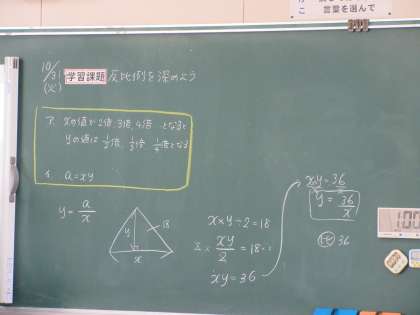 言葉を選んで
10/31
(火)
学習課題 反比例を深めよう
ア xの値が2倍、3倍、4倍 となると
yの値は 1/2倍、1/3倍、1/4倍となる
イ a=xy
y=a/x
y
18
x
x×y÷2=18
xy/2=18
xy=36
xy=36
y=36/x
比 36
1:00